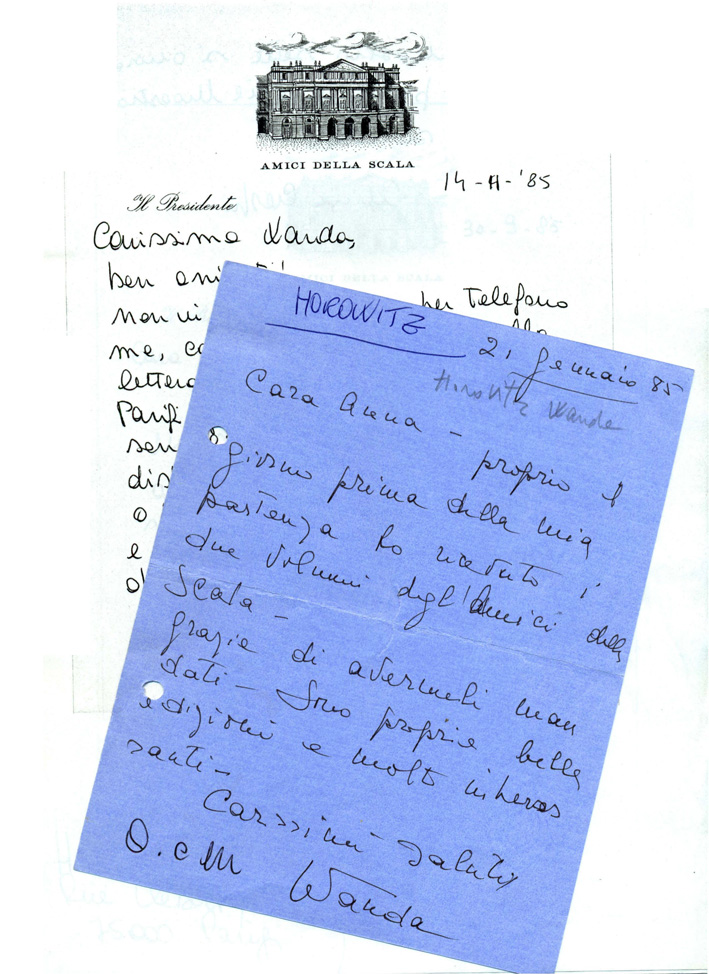 AMICI DELLA SCALA
14-II-'85
Il Presidente
Carissima Wanda,
ben
per telefono
non vi
me,
lettera
sen
o
e
HOROWITZ
21 gennaio 85
Horovitz Wanda
Cara Anna – proprio il
giorno prima della mia
partenza ho ricevuto i
due volumi degl'Amici della
Scala –
grazie di avermeli man
dati – Sono proprie belle
edizioni e molto interes
santi –
Carissimi saluti
Wanda